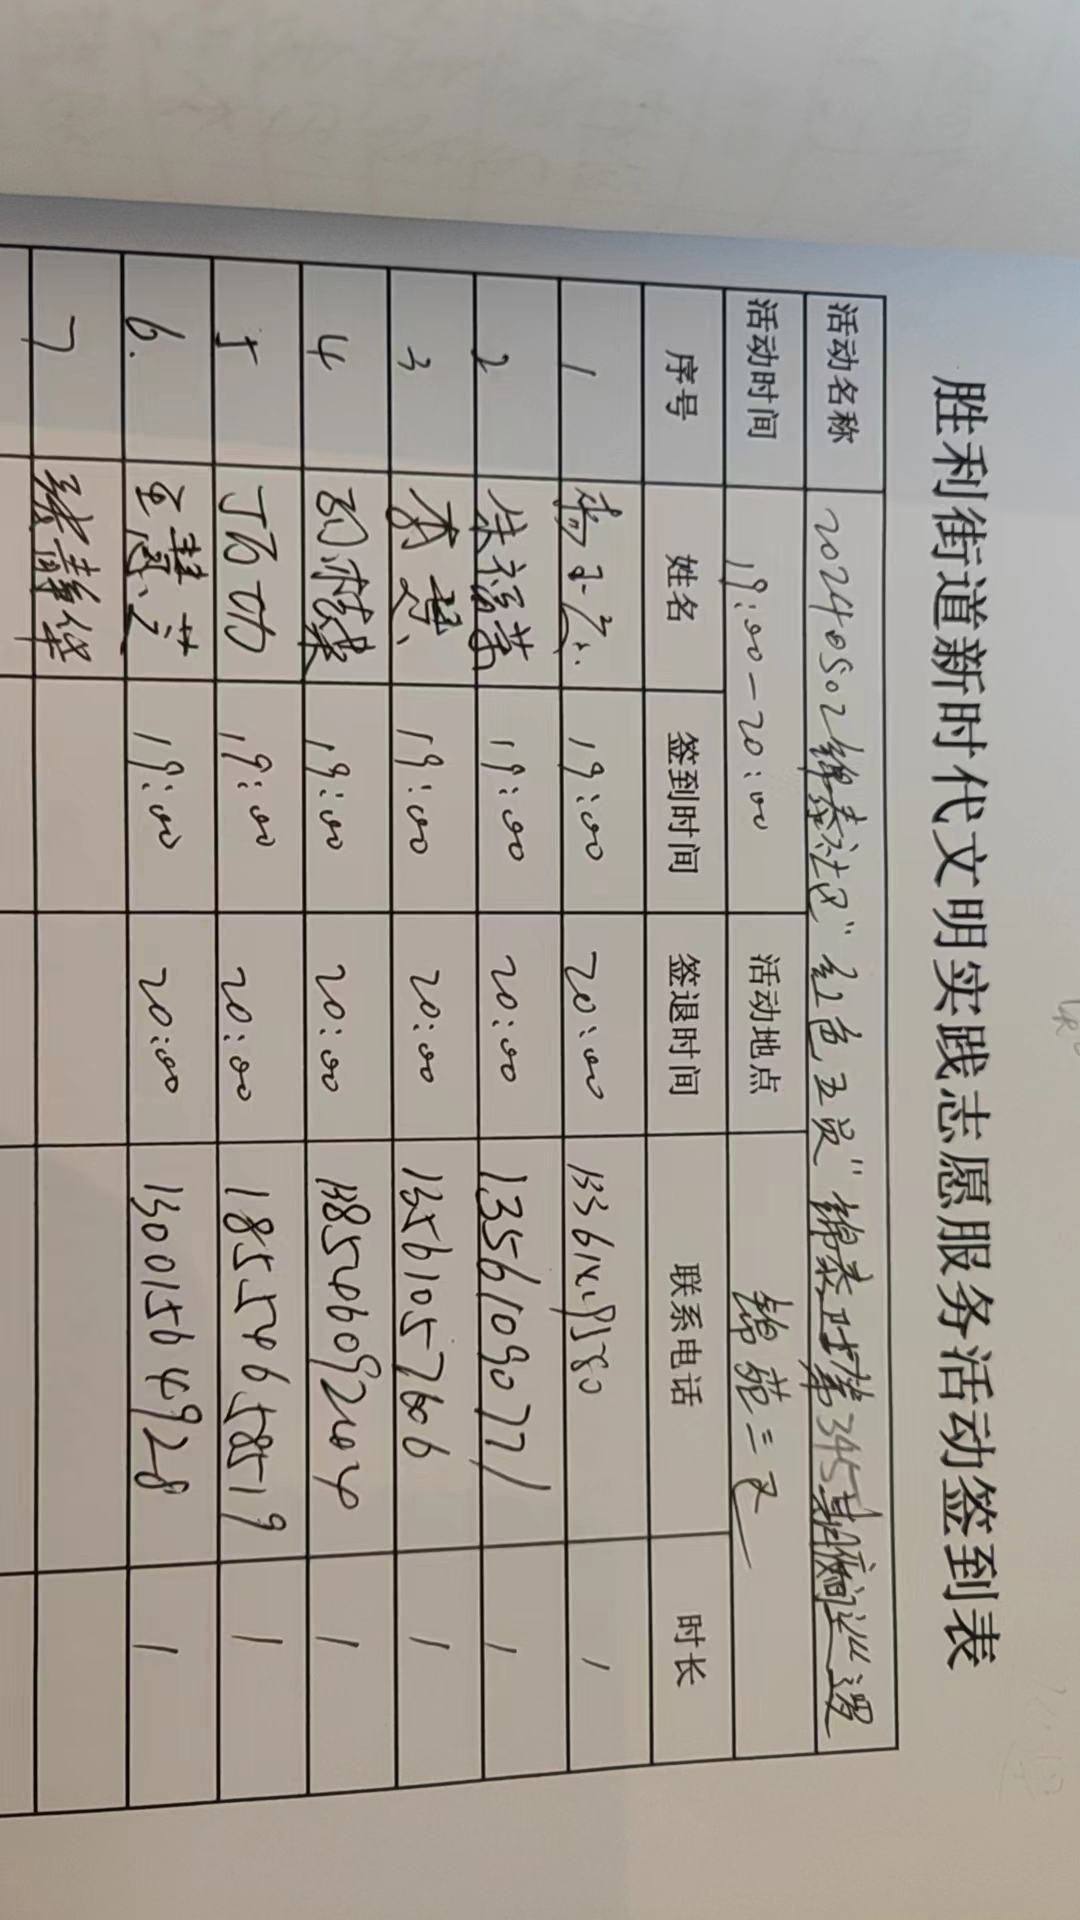 胜利街道新时代文明实践志愿服务活动签到表
活动名称 20240502锦泰社区"红色五员"锦泰卫士第345期夜间巡逻
活动时间 19:00-20:00 活动地点 锦苑三区
序号 姓名 签到时间 签退时间 联系电话 时长
1 19:00 20:00 1
2 19:00 20:00 13561090771 1
3 19:00 20:00 13561057606 1
4 19:00 20:00 1
5 19:00 20:00 18554658519 1
6. 王慧芝 19:00 20:00 13001564928 1
7 张静华